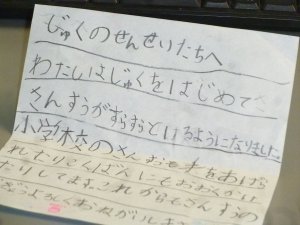 じゅくのせんせいたちへ
わたしはじゅくをはじめて
さんすうがすらすらといるようになりました
小学校のさんすうも手をあげら
れたりこくばんにもおおくかい
たりしてます。これからもさんすうの
よろしくおねがいしま